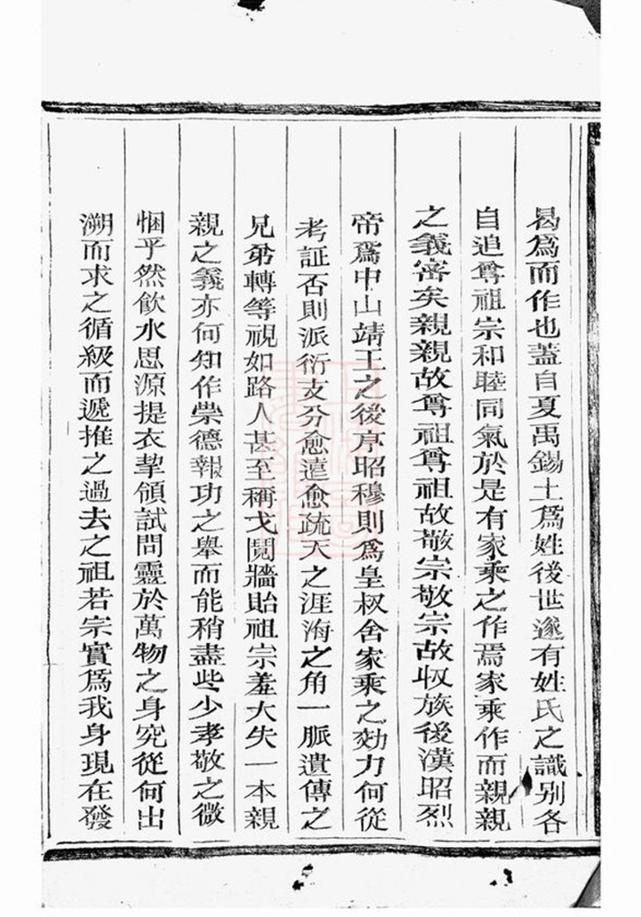 曷為而作也蓋自夏禹錫土爲姓後世遂有姓氏之識别各
自追尊祖宗和睦同氣於是有家乘之作焉家乘作而親親
之義審矣親親故尊祖尊祖故敬宗敬宗故収族後漢昭烈
帝爲中山靖王之後序昭穆則爲皇叔舍家乘之効力何從
考証否則派衍支分愈遠愈疏天之涯海之角一脈遺傳之
兄弟轉等視如路人甚至稱戈鬩牆貽祖宗羞大失一本親
親之義亦何知作崇德報功之舉而能稍盡些少孝敬之微
悃乎然飲水思源提衣挈領試問靈於萬物之身究從何出
溯而求之循級而遞推之過去之祖若宗實爲我身現在發